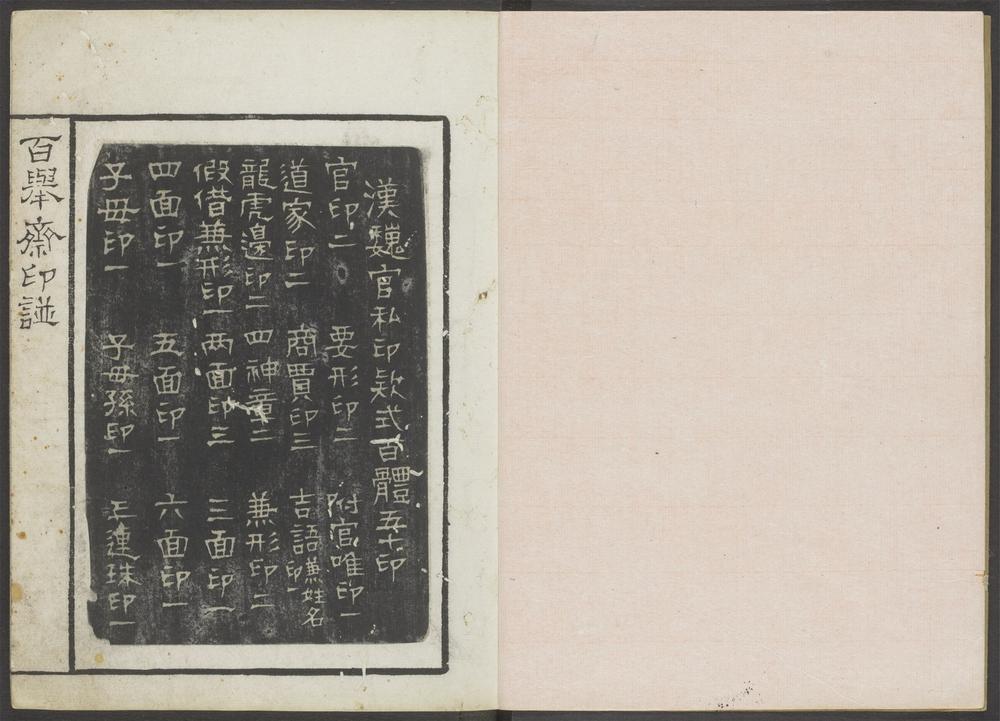 漢魏官私印欵式百體五十印
官印二 要形印二 附官唯印一
道家印二 商賈印三 吉語兼姓名印一
龍虎邊印二 四神章二 兼形印二
假借兼形印一 两面印三 三面印一
四面印一 五面印一 六面印一
子母印一 子母孫印一 連珠印一
百舉齋印譜